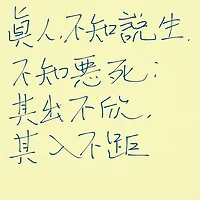 眞人,不知說生.
不知惡死;
其出不欣,
其入不距